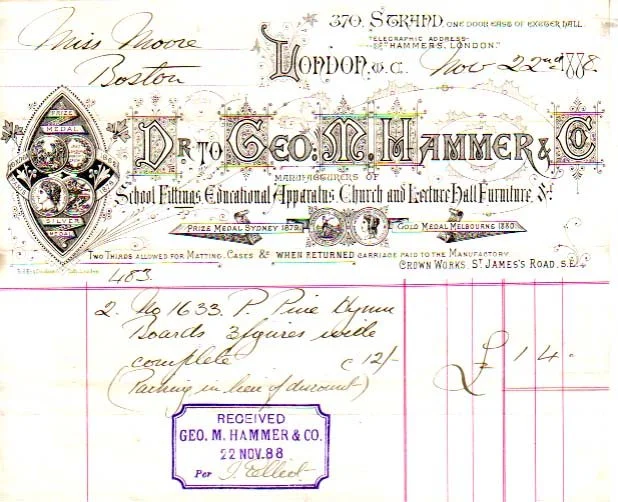 370, STRAND, ONE DOOR EAST OF EXETER HALL.
Miss Moore
TELEGRAPHIC ADDRESS-
"HAMMERS, LONDON."
Boston
LONDON, W.C. Nov 22nd 1888.
PRIZE
MEDAL
DR TO GEO: M. HAMMER & CO
MANUFACTURERS OF
School Fittings, Educational Apparatus, Church and Lecture Hall Furniture, &c
SILVER
MEDAL
PRIZE MEDAL SYDNEY 1879. GOLD MEDAL MELBOURNE 1880.
TWO THIRDS ALLOWED FOR MATTING, CASES &c WHEN RETURNED CARRIAGE PAID TO THE MANUFACTORY
CROWN WORKS, ST JAMES'S ROAD, S.E.
483.
2. No 1633. P. Pine Hymn
Boards 3 figures wide
complete c 12/- £ 1 4.
(Packing in lieu of discount)
RECEIVED
GEO. M. HAMMER & CO.
22 NOV. 88
Per